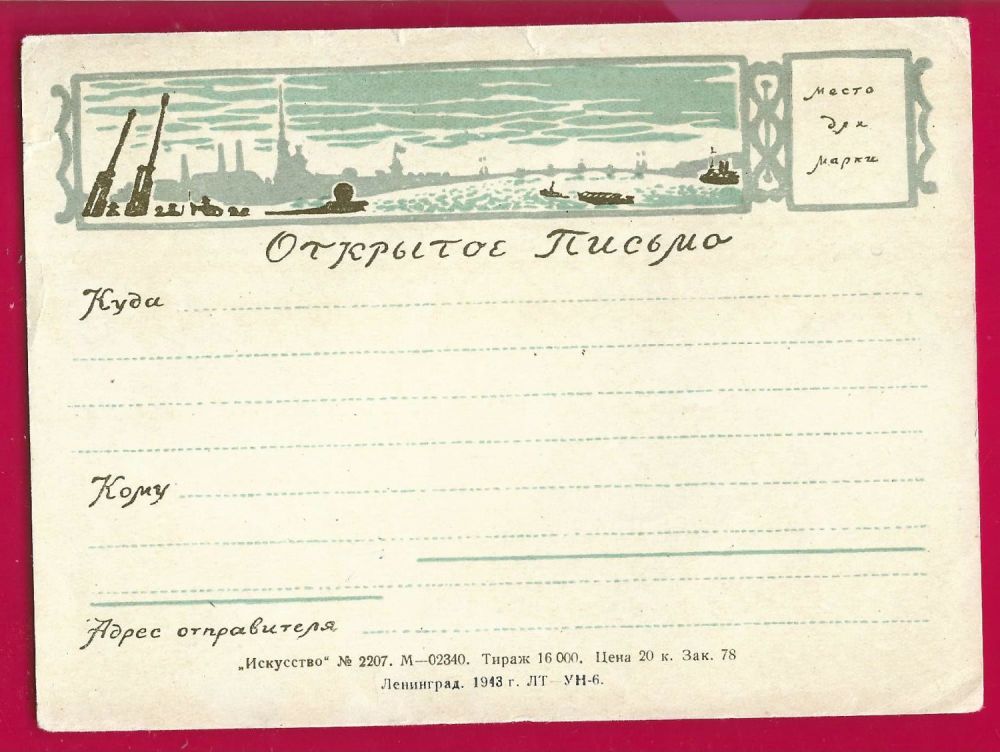 место
для
марки
Открытое Письмо
Куда
Кому
Адрес отправителя
„Искусство“ № 2207. М—02340. Тираж 16 000. Цена 20 к. Зак. 78
Ленинград. 1943 г. ЛТ—УН-6.